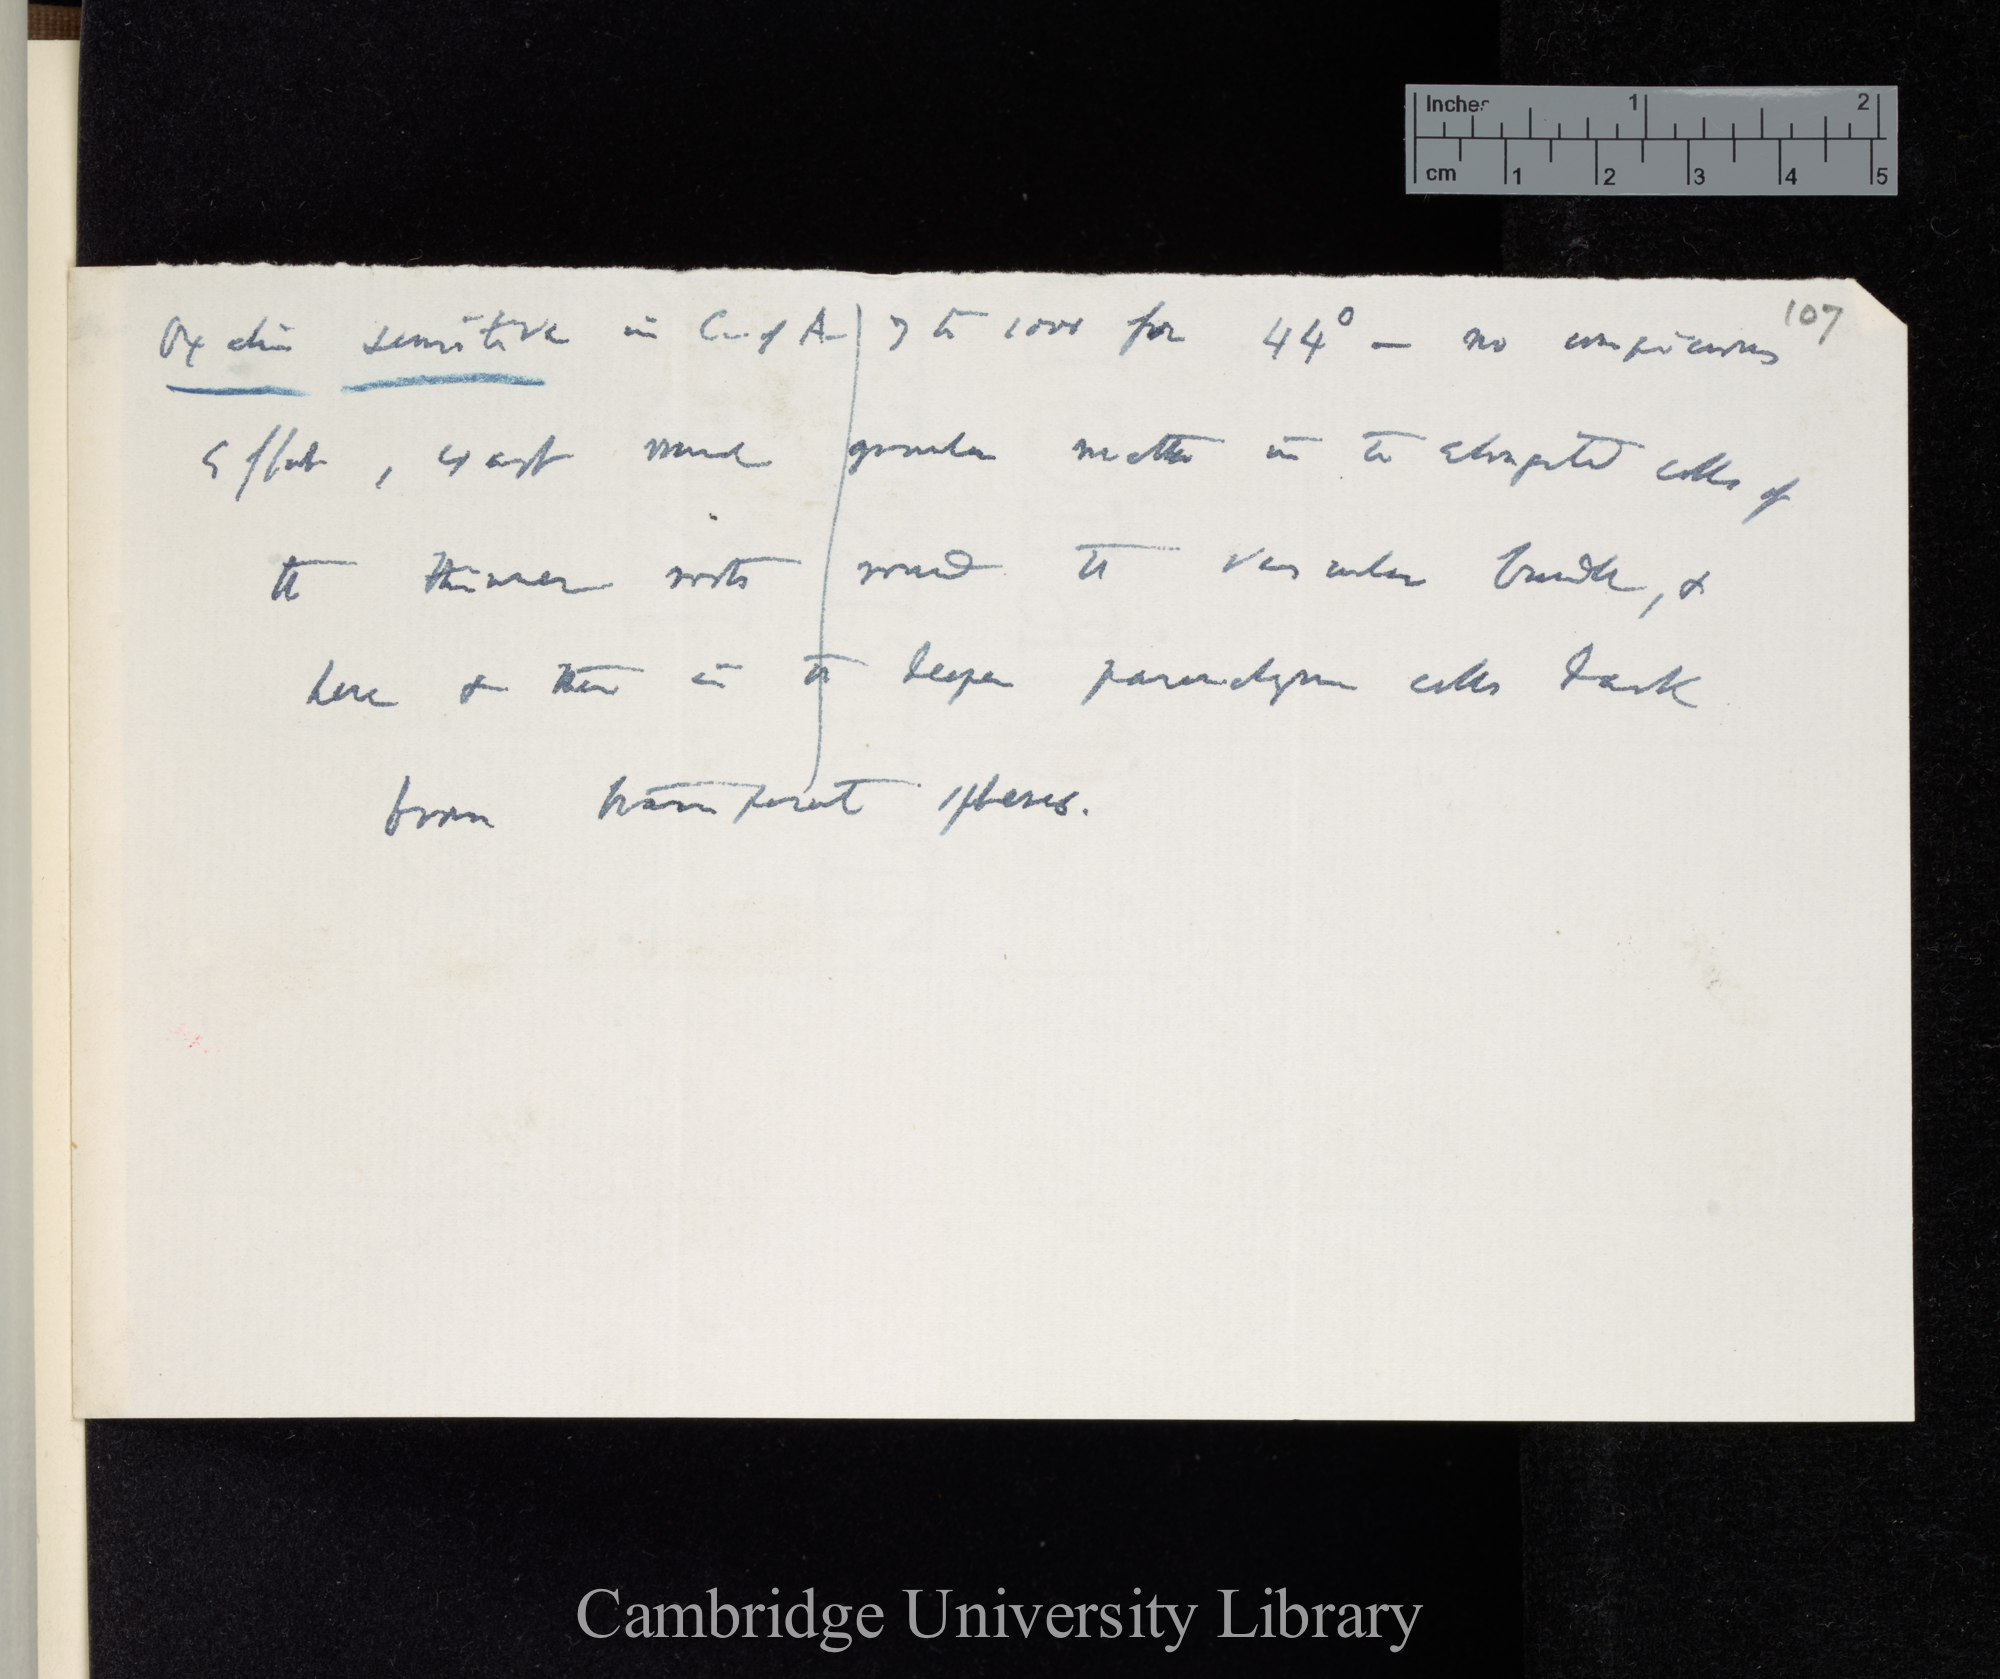 Inches 1 2
cm 1 2 3 4 5
107
Oxalis sensitiva in C. of A. 7 to 1000 for 44° — no conspicuous
effect, except much granular matter in the elongated cells of
the thinner roots round the vascular bundle, &
here & there in the deeper parenchyma cells dark
brown transparent spheres.
Cambridge University Library